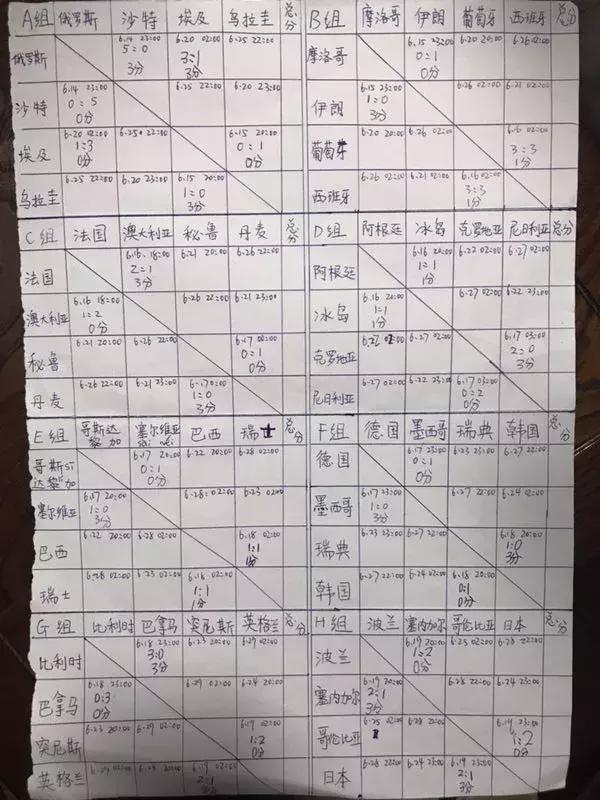 A组 俄罗斯 沙特 埃及 乌拉圭 总分
俄罗斯 6.14 23:00 6.20 02:00 6.25 22:00
5:0 3:1
3分 3分
沙特 6.14 23:00 6.25 22:00 6.20 23:00
0:5
0分
埃及 6.20 02:00 6.25 22:00 6.15 20:00
1:3 0:1
0分 0分
乌拉圭 6.25 22:00 6.20 23:00 6.15 20:00
1:0
3分
B组 摩洛哥 伊朗 葡萄牙 西班牙 总分
摩洛哥 6.15 23:00 6.20 20:00 6.26 02:00
0:1
0分
伊朗 6.15 23:00 6.26 02:00 6.21 02:00
1:0
3分
葡萄牙 6.20 20:00 6.26 02:00 6.16 02:00
3:3
1分
西班牙 6.26 02:00 6.21 02:00 6.16 02:00
3:3
1分
C组 法国 澳大利亚 秘鲁 丹麦 总分
法国 6.16 18:00 6.21 20:00 6.26 22:00
2:1
3分
澳大利亚 6.16 18:00 6.26 22:00 6.21 23:00
1:2
0分
秘鲁 6.21 20:00 6.26 22:00 6.17 00:00
0:1
0分
丹麦 6.26 22:00 6.21 23:00 6.17 0:00
1:0
3分
D组 阿根廷 冰岛 克罗地亚 尼日利亚 总分
阿根廷 6.16 20:00 6.22 02:00 6.27 02:00
1:1
1分
冰岛 6.16 20:00 6.27 02:00 6.22 23:00
1:1
1分
克罗地亚 6.22 02:00 6.27 02:00 6.17 03:00
2:0
3分
尼日利亚 6.27 02:00 6.22 23:00 6.17 03:00
0:2
0分
E组 哥斯达黎加 塞尔维亚 巴西 瑞士 总分
哥斯达黎加 6.17 20:00 6.22 20:00 6.28 02:00
0:1
0分
塞尔维亚 6.17 20:00 6.28 02:00 6.23 02:00
1:0
3分
巴西 6.22 20:00 6.28 02:00 6.18 02:00
1:1
1分
瑞士 6.28 02:00 6.23 02:00 6.18 02:00
1:1
1分
F组 德国 墨西哥 瑞典 韩国 总分
德国 6.17 23:00 6.23 23:00 6.27 22:00
0:1
0分
墨西哥 6.17 23:00 6.27 22:00 6.24 02:00
1:0
3分
瑞典 6.23 23:00 6.27 22:00 6.18 20:00
1:0
3分
韩国 6.27 22:00 6.24 02:00 6.18 20:00
0:1
0分
G组 比利时 巴拿马 突尼斯 英格兰 总分
比利时 6.18 23:00 6.23 20:00 6.29 02:00
3:0
3分
巴拿马 6.18 23:00 6.29 02:00 6.24 20:00
0:3
0分
突尼斯 6.23 20:00 6.29 02:00 6.19 02:00
1:2
0分
英格兰 6.29 02:00 6.24 20:00 6.19 02:00
2:1
3分
H组 波兰 塞内加尔 哥伦比亚 日本 总分
波兰 6.19 20:00 6.25 02:00 6.28 22:00
1:2
0分
塞内加尔 6.19 20:00 6.28 22:00 6.24 23:00
2:1
3分
哥伦比亚 6.25 02:00 6.28 22:00 6.19 23:00
1:2
0分
日本 6.28 22:00 6.24 23:00 6.19 23:00
2:1
3分